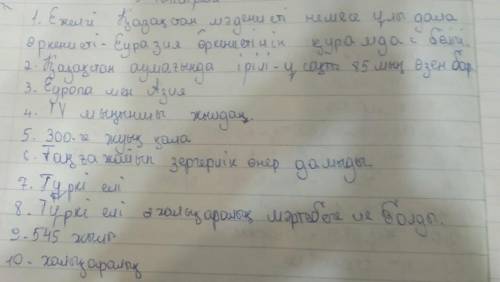 1. Ежелгі Қазақстан мәдениеті немесе ұлы дала
өркениеті - Еуразия өркениетінің құрамдас бөлігі.
2. Қазақстан аумағында ірілі-ұсақты 85 мың өзен бар.
3. Европа мен Азия
4. IV мыңыншы жылдан,
5. 300-ге жуық қала
6. Таңғажайып зергерлік өнер дамыды.
7. Түркі елі
8. Түркі елі халықаралық мәртебеге ие болды.
9. 545 жылы
10. халықаралық